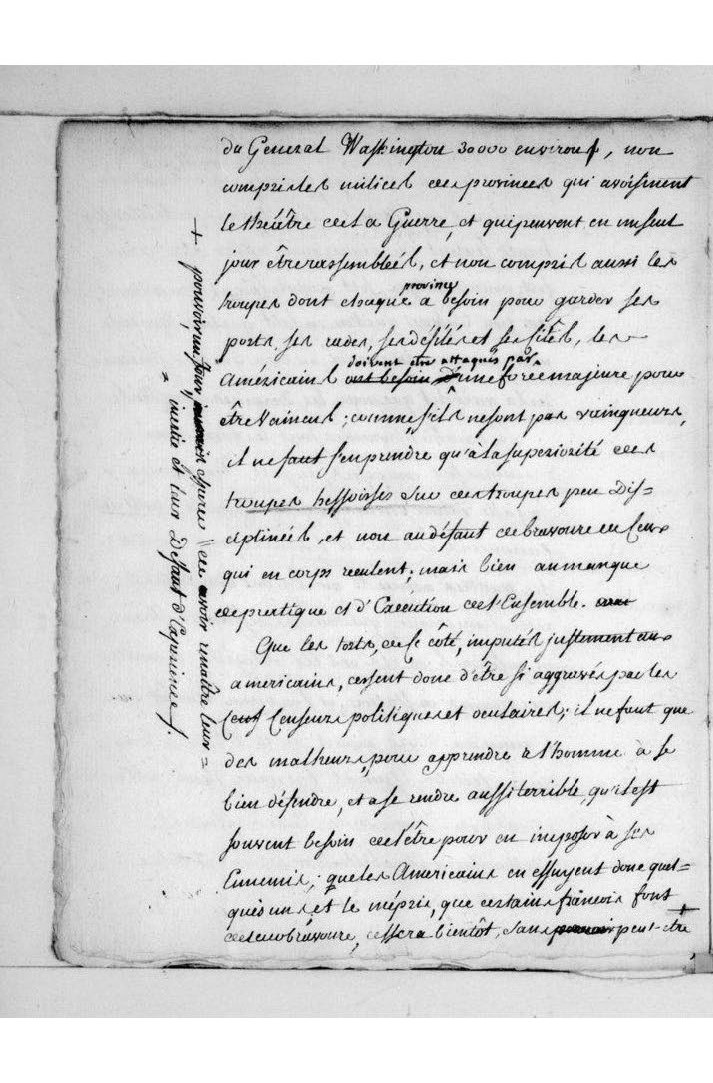 du General Washington 30000 environ, non
compris les milices des provinces qui avoisinent
le théâtre de la Guerre, et qui peuvent en un seul
jour être rassembleés, et non compris aussi les
province
troupes dont chaque a besoin pour garder ses
ports, ses rades, ses défilés et ses sites, les
doivent etre attaqués par
Américains ont besoin d'une force majeure pour
être Vaincus; comme s'ils ne sont pas vainqueurs,
il ne faut s'en prendre qu'à la superiorité des
troupes hessoises sur des troupes peu Dis=
ciplineés, et non au défaut de bravoure de Ceux
qui en corps reculent; mais bien au manque
de pratique et d'Execution de l'Ensemble.
Que les torts, de ce côté, imputés justement aux
americains, cessent donc d'être si aggravés par les
Censeurs politiques et oculaires; il ne faut que
des malheurs, pour apprendre a l'homme à se
bien défendre, et a se rendre aussi terrible, qu'il est
souvent besoin de l'être pour en imposer à ses
Ennemis; que les Americains en essuyent donc quel=
ques uns, et le mépris, que certains françois font
de leur bravoure, cessera bientôt, sans pouvoir peut-etre
+
pouvoir un jour, espérer de voir renaître leur=
inertie et leur Defaut d'Experience.